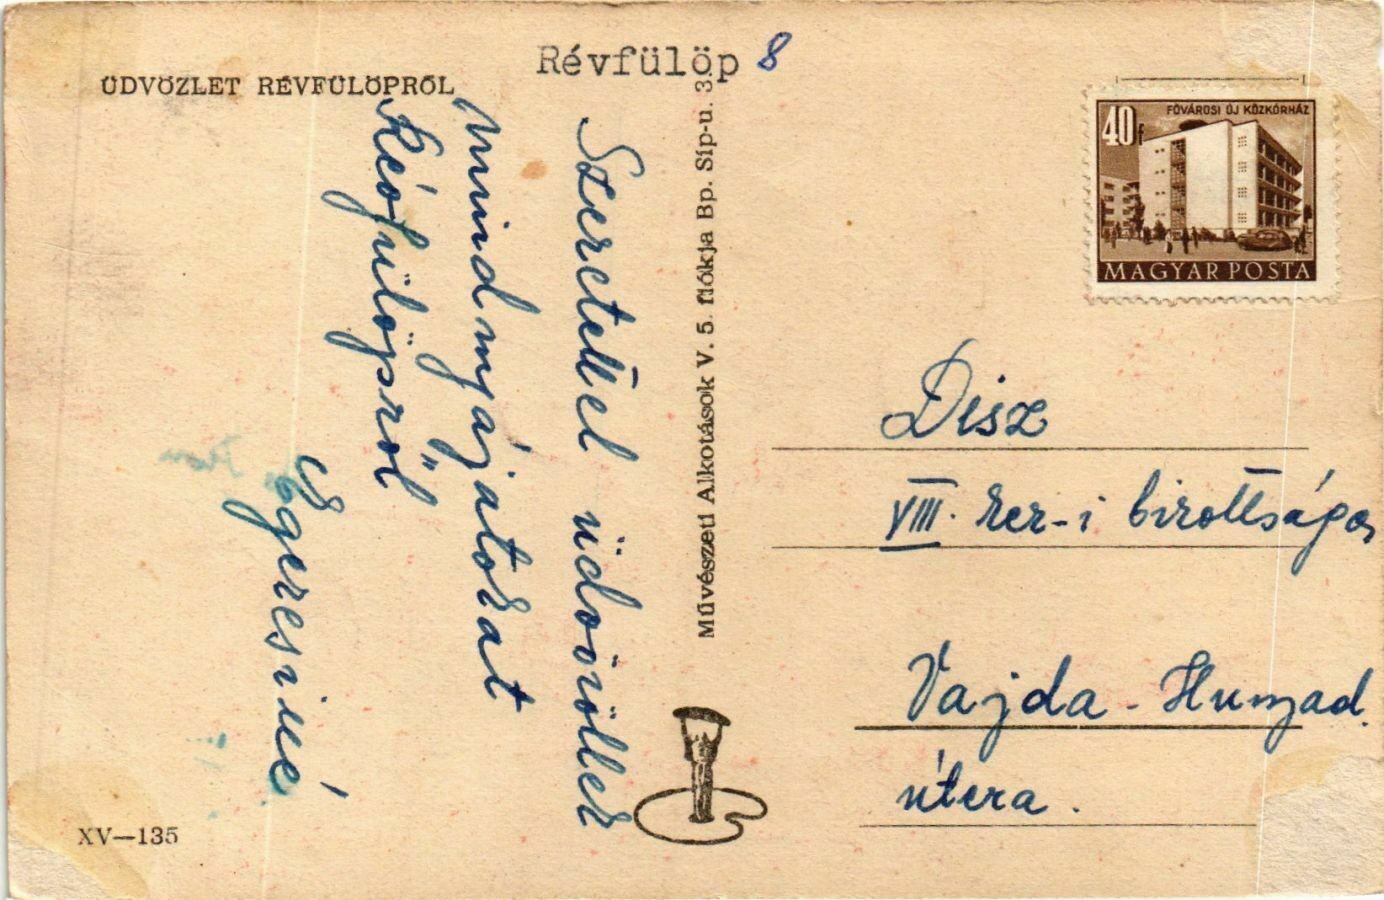 Révfülöp 8
ÜDVÖZLET RÉVFÜLÖPRŐL
Szeretettel üdvözöllek
mindnyájatokat
Révfülöpről
Egeresiné
Művészeti Alkotások V. 5. fiókja Bp. Síp-u. 3.
XV—135
FŐVÁROSI ÚJ KÖZKÓRHÁZ
40f
MAGYAR POSTA
Disz
VIII. ker-i bizottsága
Vajda-Hunyad.
útcza.